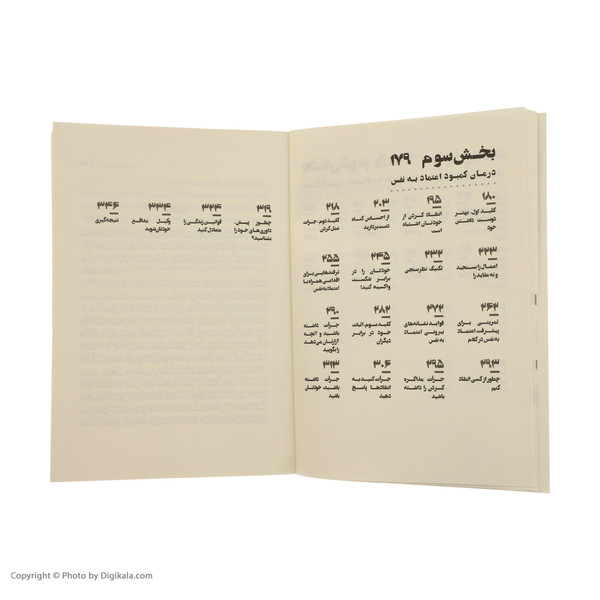 بخش سوم ۱۷۹
درمان کمبود اعتماد به نفس
۱۸۰
کلید اول، بهتر
دوست داشتن
خود
۱۹۵
انتقاد کردن از
خودتان اشتباه
است
۲۰۳
از احساس گناه
دست بردارید
۲۱۸
کلید دوم، جرات
عمل کردن
۲۲۳
اعمال را بسنجید
و نه عقاید را
۲۳۲
تکنیک نظرسنجی
۲۴۵
خودتان را در
برابر شکست
واکسینه کنید!
۲۵۵
ترفندهایی برای
اقدامی همراه با
اعتماد به نفس
۲۶۲
تمرینی برای
پیشرفت اعتماد
به نفس در کلام
۲۷۲
فواید نشانه‌های
بیرونی اعتماد
به نفس
۲۸۲
کلید سوم، اثبات
خود در برابر
دیگران
۲۹۰
جرأت داشته
باشید و آنچه
آزارتان می‌دهد
را بگویید
۲۹۳
چطور از کسی انتقاد
کنیم
۲۹۵
جرأت مذاکره
کردن را داشته
باشید
۳۰۶
جرأت کنید به
انتقادها پاسخ
دهید
۳۱۳
جرأت داشته
باشید خودتان
باشید
۳۱۹
چطور پیش
داوری‌های خود را
بشناسید؟
۳۲۴
قوانین زندگی را
متعادل کنید
۳۳۴
وکیل مدافع
خودتان شوید
۳۴۶
نتیجه‌گیری
Copyright © Photo by Digikala.com